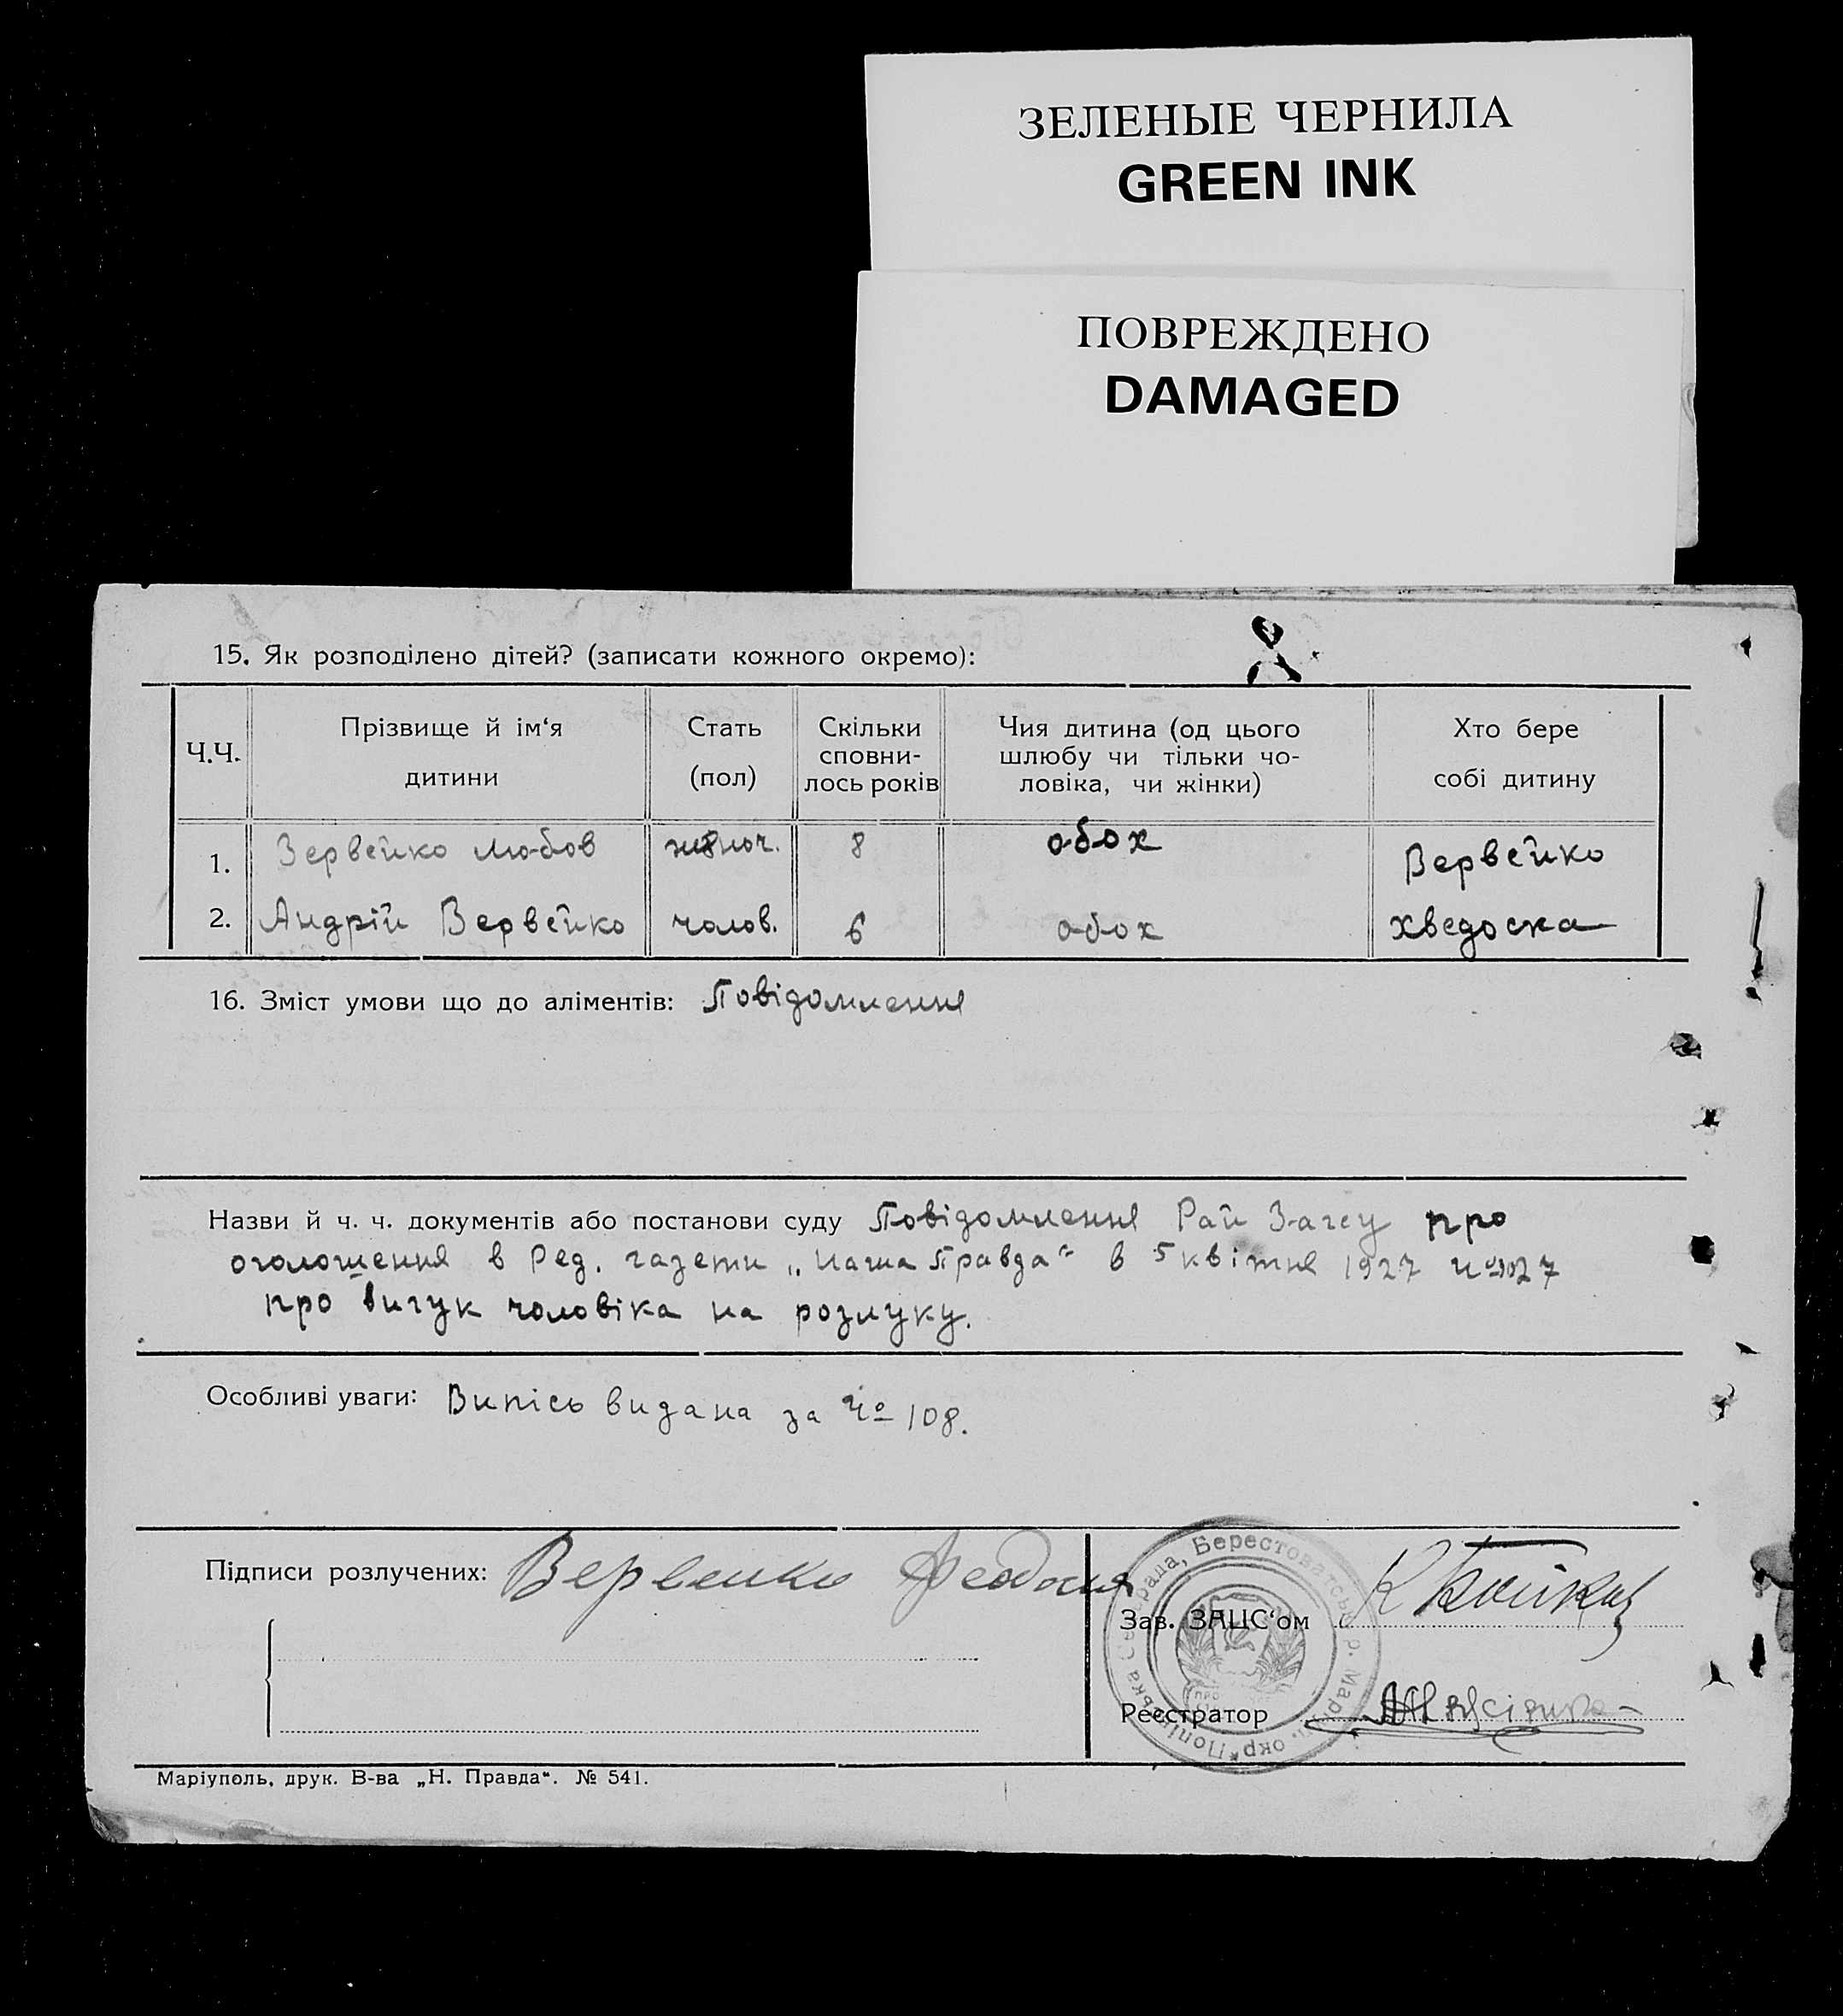 ЗЕЛЕНЫЕ ЧЕРНИЛА
GREEN INK
ПОВРЕЖДЕНО
DAMAGED
15. Як розподілено дітей? (записати кожного окремо):
Ч.Ч.
Прізвище й ім‘я
дитини
Стать
(пол)
Скільки
сповни-
лось років
Чия дитина (од цього
шлюбу чи тільки чо-
ловіка, чи жінки)
Хто бере
собі дитину
1. Вервейко Любов жіноч. 8 обох Вервейко
2. Андрій Вервейко чолов. 6 обох Хведоска
16. Зміст умови що до аліментів: Повідомлення
Назви й ч. ч. документів або постанови суду Повідомлення Рай Загсу про
оголошення в Ред. газети „Наша Правда“ в 5 квітня 1927
про вигук чоловіка на розлуку.
Особливі уваги: Випісь видана за Чо 108.
Підписи розлучених: Вервейко Феодосия
Зав. ЗАЦС‘ом
Реєстратор
Сельрада, Берестоватськ. р. Маріуп. окр.
Маріуполь, друк. В-ва „Н. Правда“. № 541.